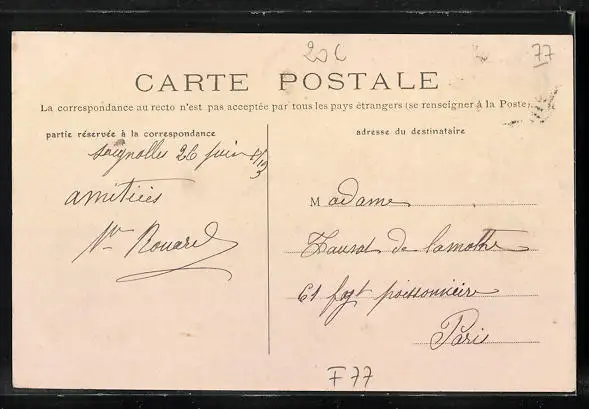 20 € 77
CARTE POSTALE
La correspondance au recto n'est pas acceptée par tous les pays étrangers (se renseigner à la Poste).
partie réservée à la correspondance
adresse du destinataire
Soignolles 26 juin
amitiés
Rouard
Madame
de Lamothe
61 fbg poissonnière
Paris
F77